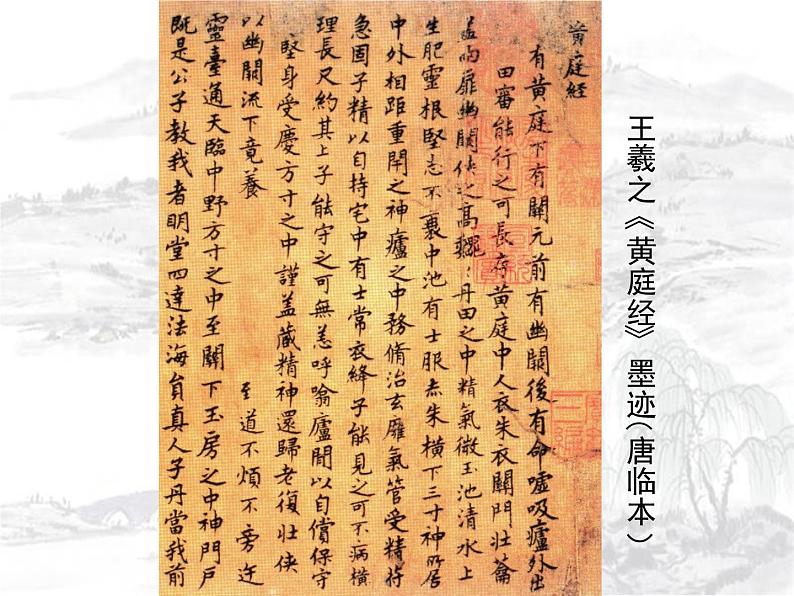 王羲之《黄庭经》墨迹(唐临本)
黄庭经
有黄庭下有關元前有幽關後有命嘘吸廬外出
田審能行之可長存黄庭中人衣朱衣關門壮蘥
盖兩扉幽關侠之高巍〻丹田之中精氣微玉池清水上
生肥靈根堅志不衰中池有士服赤朱横下三寸神所居
中外相距重閇之神廬之中務脩治玄廱氣管受精符
急固子精以自持宅中有士常衣絳子能見之可不病横
理長尺約其上子能守之可無恙呼噏廬間以自償保守
堅身受慶方寸之中謹盖蔵精神還歸老復壮侠
以幽關流下竟養 至道不煩不旁迕
靈臺通天臨中野方寸之中至關下玉房之中神門戸
既是公子教我者明堂四達法海貟真人子丹當我前